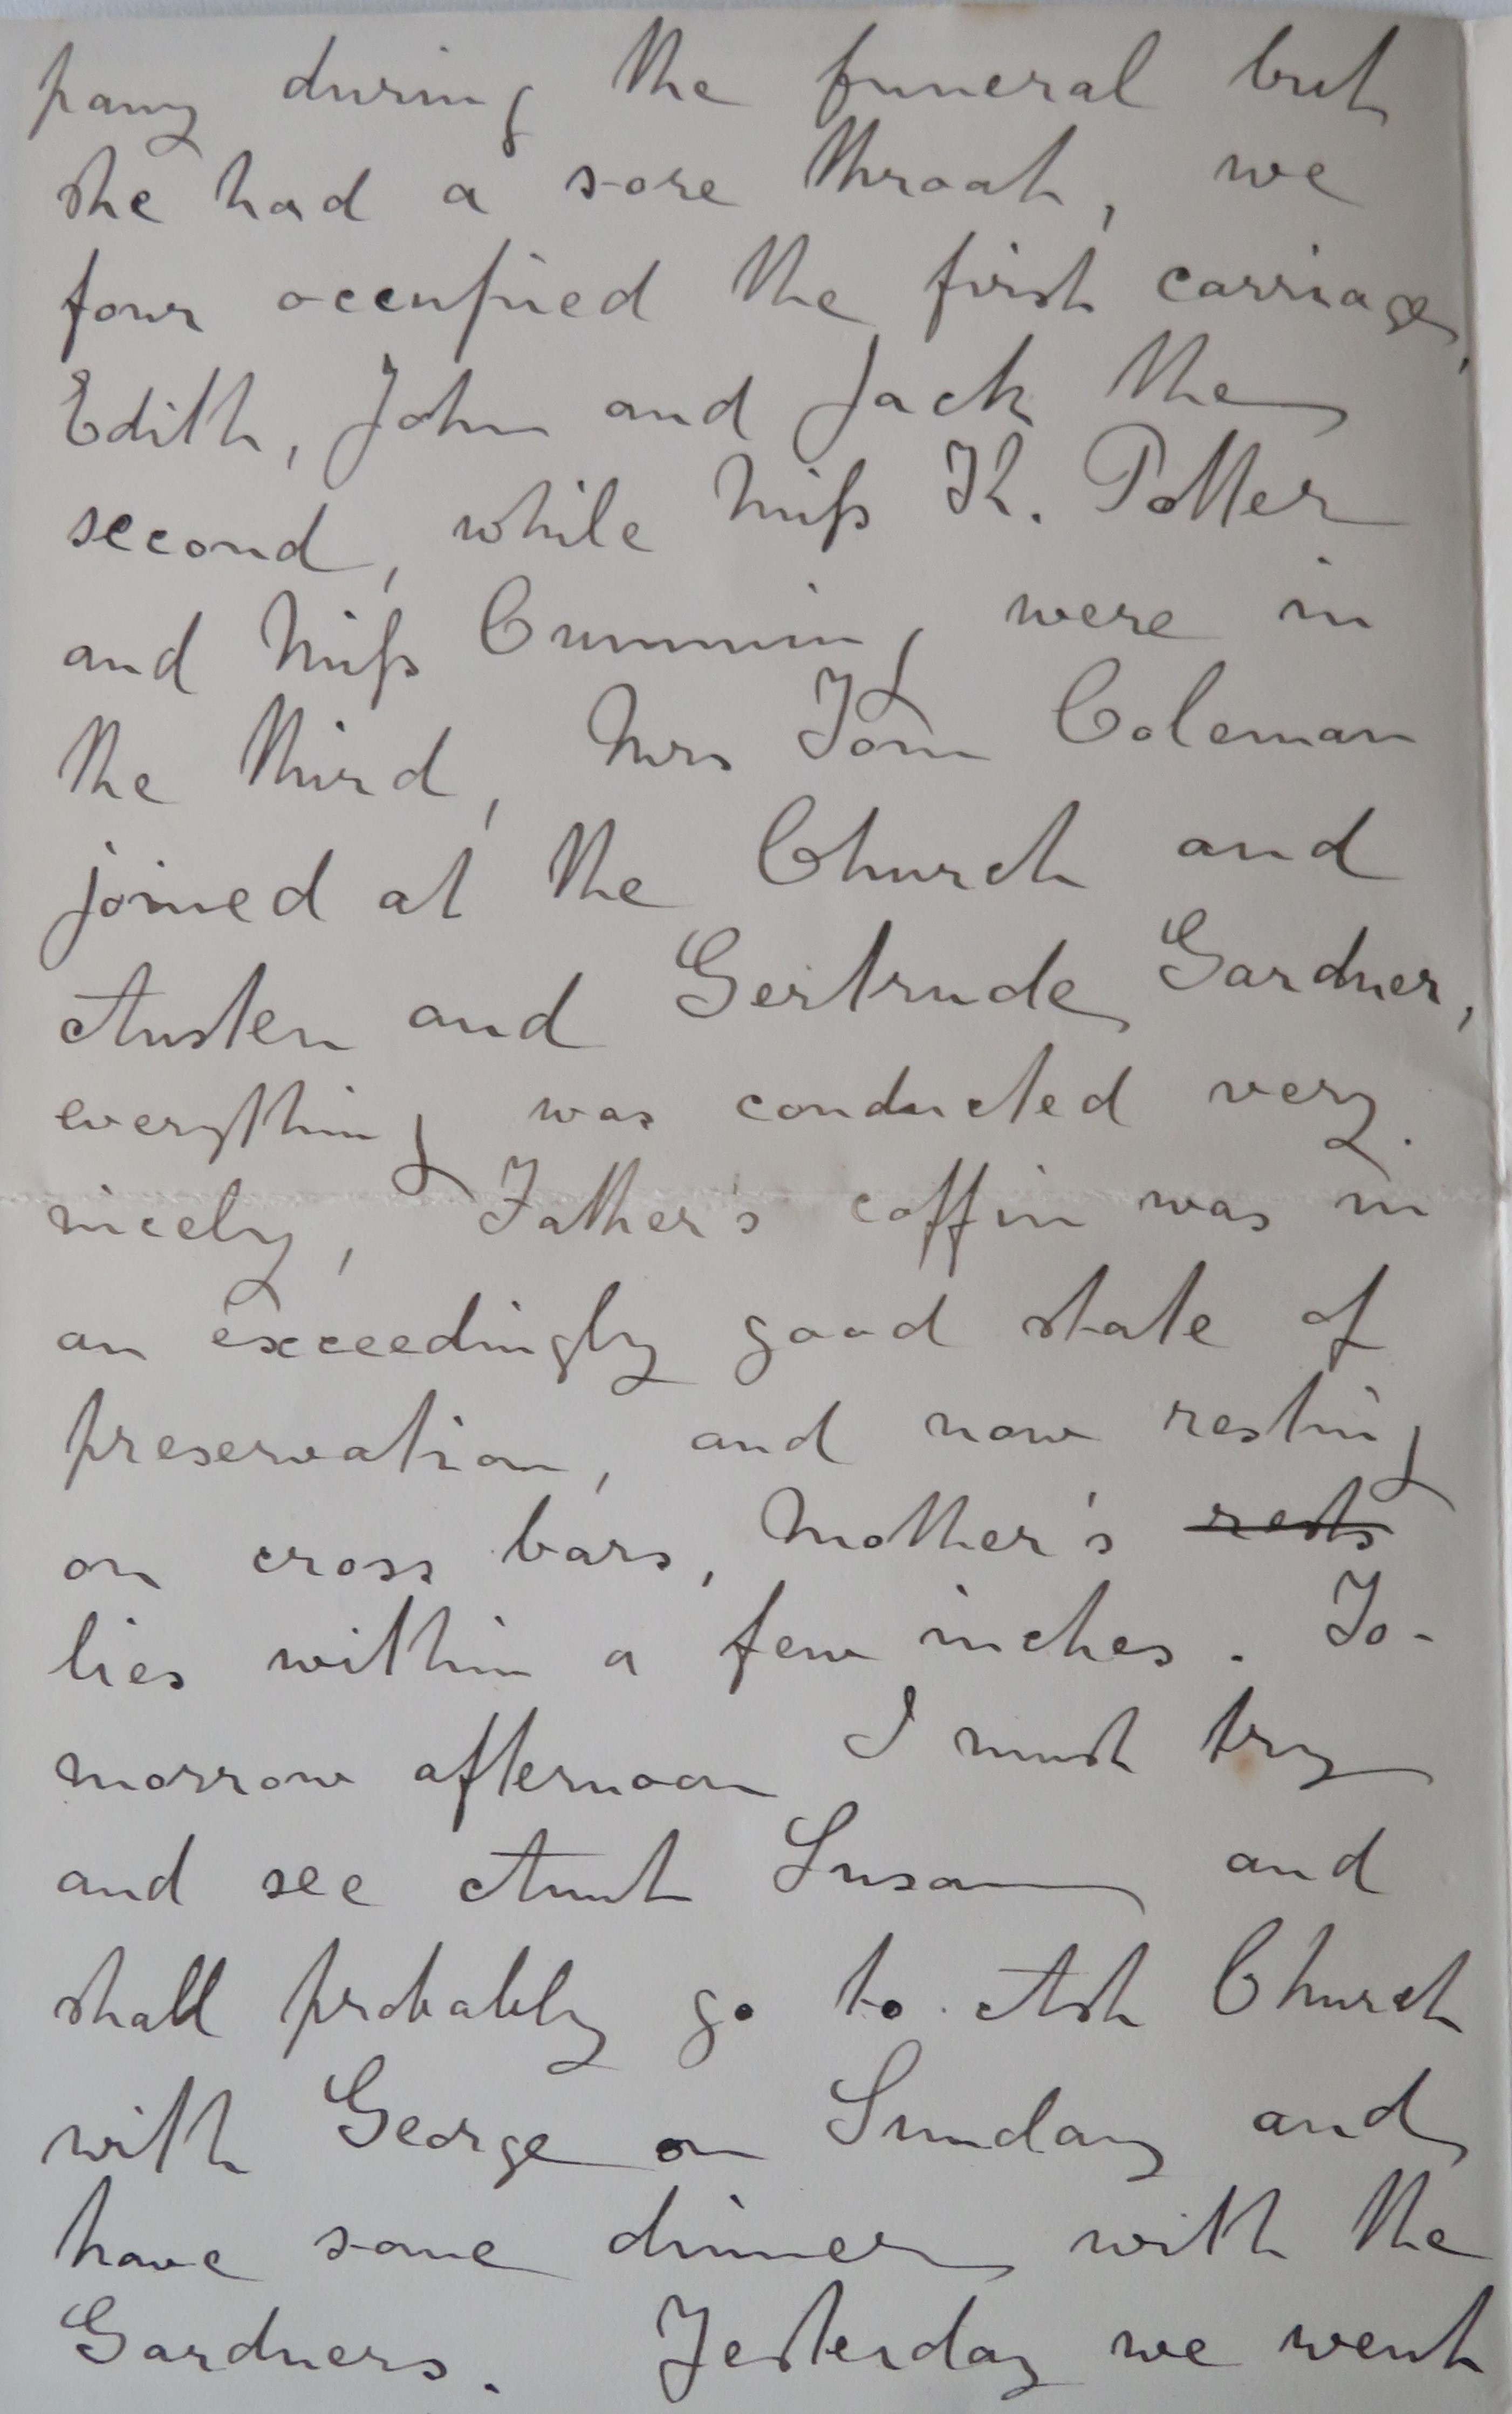 pany during the funeral but
she had a sore throat, we
four occupied the first carriage,
Edith, John and Jack the
second, while Miss K. Potter
and Miss Cumming were in
the third, Mrs Tom Coleman
joined at the Church and
Austen and Gertrude Gardner,
everything was conducted very
nicely, Father's coffin was in
an exceedingly good state of
preservation, and now resting
on cross bars, Mother's rests
lies within a few inches. To-
morrow afternoon I must try
and see Aunt Susan and
shall probably go to Ash Church
with George on Sunday and
have some dinner with the
Gardners. Yesterday we went